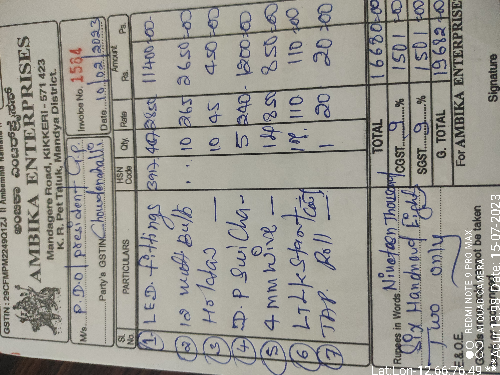 GSTIN : 29CFMPM2249Q1ZJ
ಅಂಬಿಕಾ ಎಂಟರ್‌ಪ್ರೈಸಸ್
AMBIKA ENTERPRISES
Mandagere Road, KIKKERI - 571 423
K. R. Pet Taluk, Mandya District.
M/s. P.D.O president G.P. Invoice No. 1584
Party's GSTIN Date 10/02/2023
Sl. No. PARTICULARS HSN Code Qty. Rate Amount Rs. Ps.
1 L.E.D. fittings 2850 11400=00
2 12 watt Bulb 10 265 2650=00
3 Holder 10 45 450=00
4 D.P Swich 5 240 1200=00
5 4 mm wire 1 850 850=00
6 110 110=00
7 Tap Roll 1 20 20=00
TOTAL 16680=00
CGST 9 % 1501=00
SGST 9 % 1501=00
G. TOTAL 19682=00
Rupees in Words Nineteen Thousand
Six Handred Eight
Two only
E & O.E.
For AMBIKA ENTERPRISES
Signature
REDMI NOTE 9 PRO MAX
AI QUAD CAMERA
Date, 15-07-2023